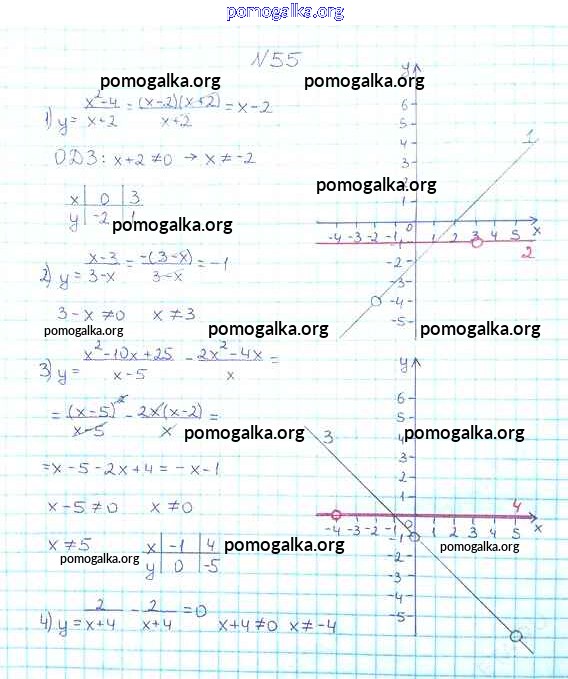 pomogalka.org
N55
pomogalka.org pomogalka.org
1) y = (x²-4)/(x+2) = ((x-2)(x+2))/(x+2) = x-2
ОДЗ: x+2 ≠ 0 → x ≠ -2
x | 0 | 3
y | -2 | 1
pomogalka.org
2) y = (x-3)/(3-x) = (-(3-x))/(3-x) = -1
3-x ≠ 0 x ≠ 3
pomogalka.org
3) y = (x²-10x+25)/(x-5) - (2x²-4x)/x =
= (x-5)²/(x-5) - 2x(x-2)/x =
pomogalka.org
= x-5-2x+4 = -x-1
x-5 ≠ 0 x ≠ 0
x ≠ 5
x | -1 | 4
y | 0 | -5
pomogalka.org
pomogalka.org
4) y = 2/(x+4) - 2/(x+4) = 0 x+4 ≠ 0 x ≠ -4
y
6
5
4
3
2
1
pomogalka.org
1
0
-4 -3 -2 -1 1 2 3 4 5 x
-1
2
-2
-3
-4
-5
pomogalka.org pomogalka.org
y
6
5
3
4
pomogalka.org
3
2
1
4
0
-4 -3 -2 -1 1 2 3 4 5 x
-1
-2
pomogalka.org
-3
-4
-5